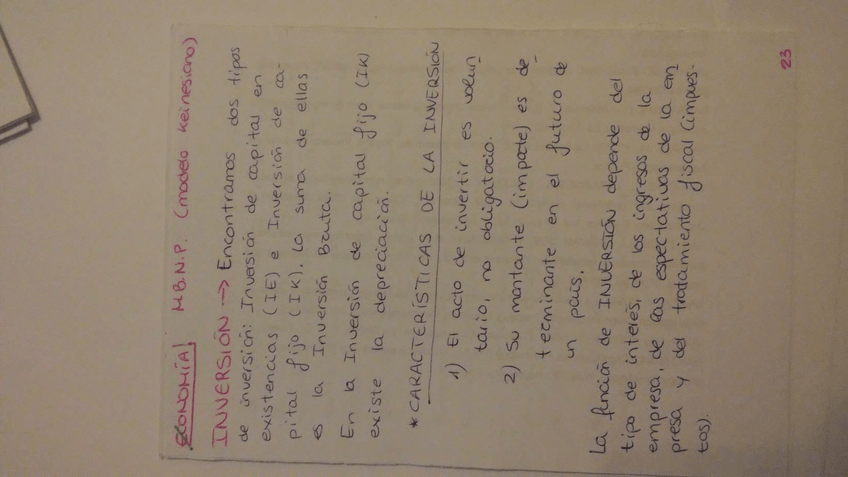 ECONOMÍA| M.B.N.P. (modelo keinesiano)
INVERSIÓN → Encontramos dos tipos
de inversión: Inversión de capital en
existencias (IE) e Inversión de ca-
pital fijo (IK). La suma de ellas
es la Inversión Bruta.
En la Inversión de capital fijo (IK)
existe la depreciación.
* CARACTERÍSTICAS DE LA INVERSIÓN
1) El acto de invertir es volun-
tario, no obligatorio.
2) Su montante (importe) es de-
terminante en el futuro de
un país.
La función de INVERSIÓN depende del
tipo de interés, de los ingresos de la
empresa, de las espectativas de la em-
presa y del tratamiento fiscal (impues-
tos).
23